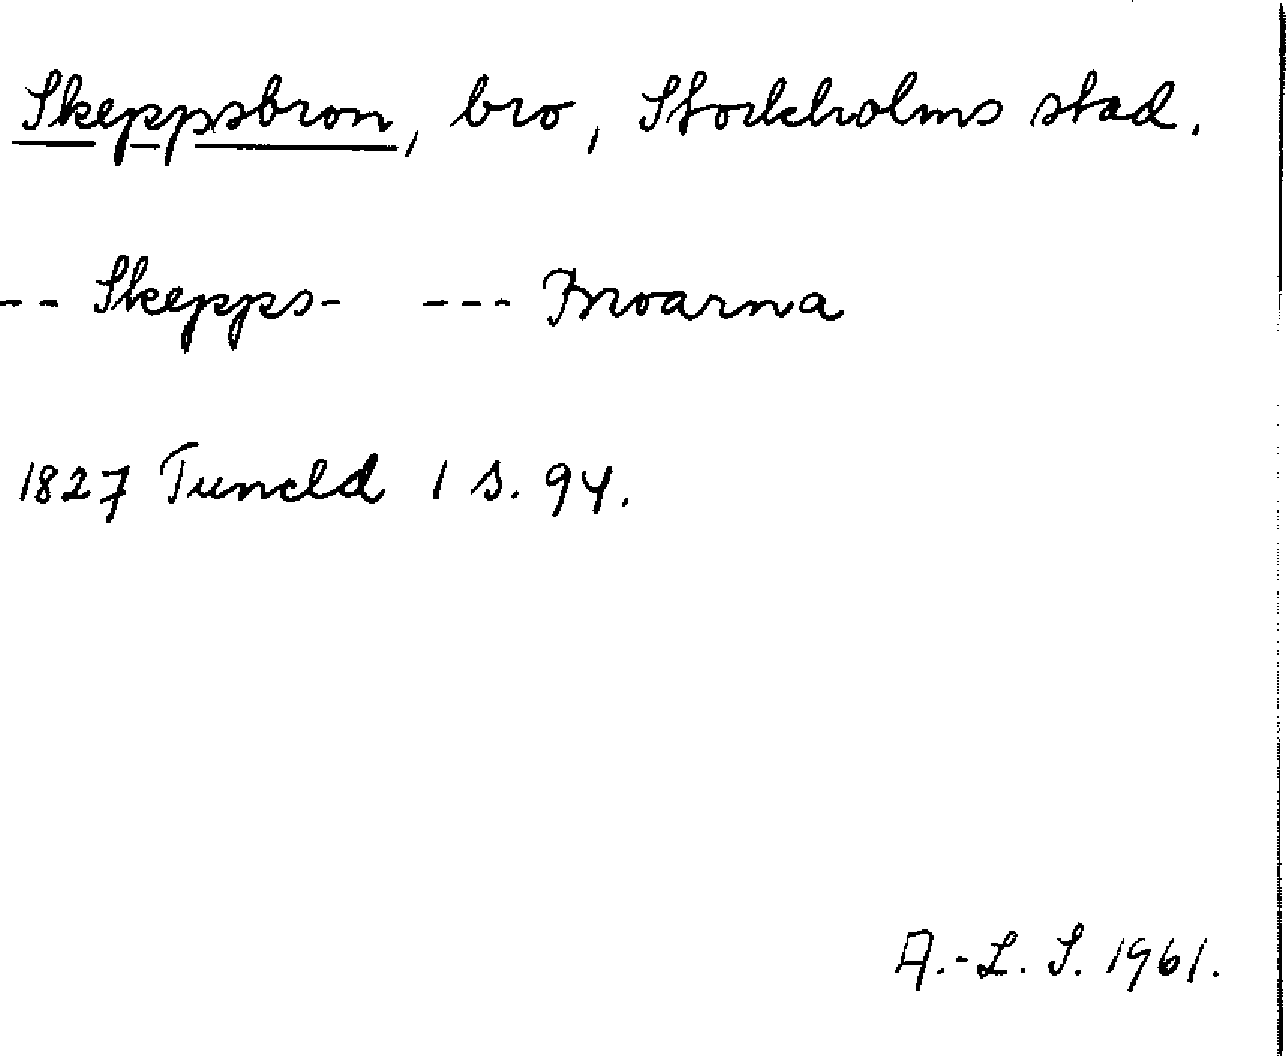 Skeppsbron, bro, Stockholms stad.
-- Skepps- --- Broarna
1827 Tuneld 1 s. 94.
A.-L. S. 1961.